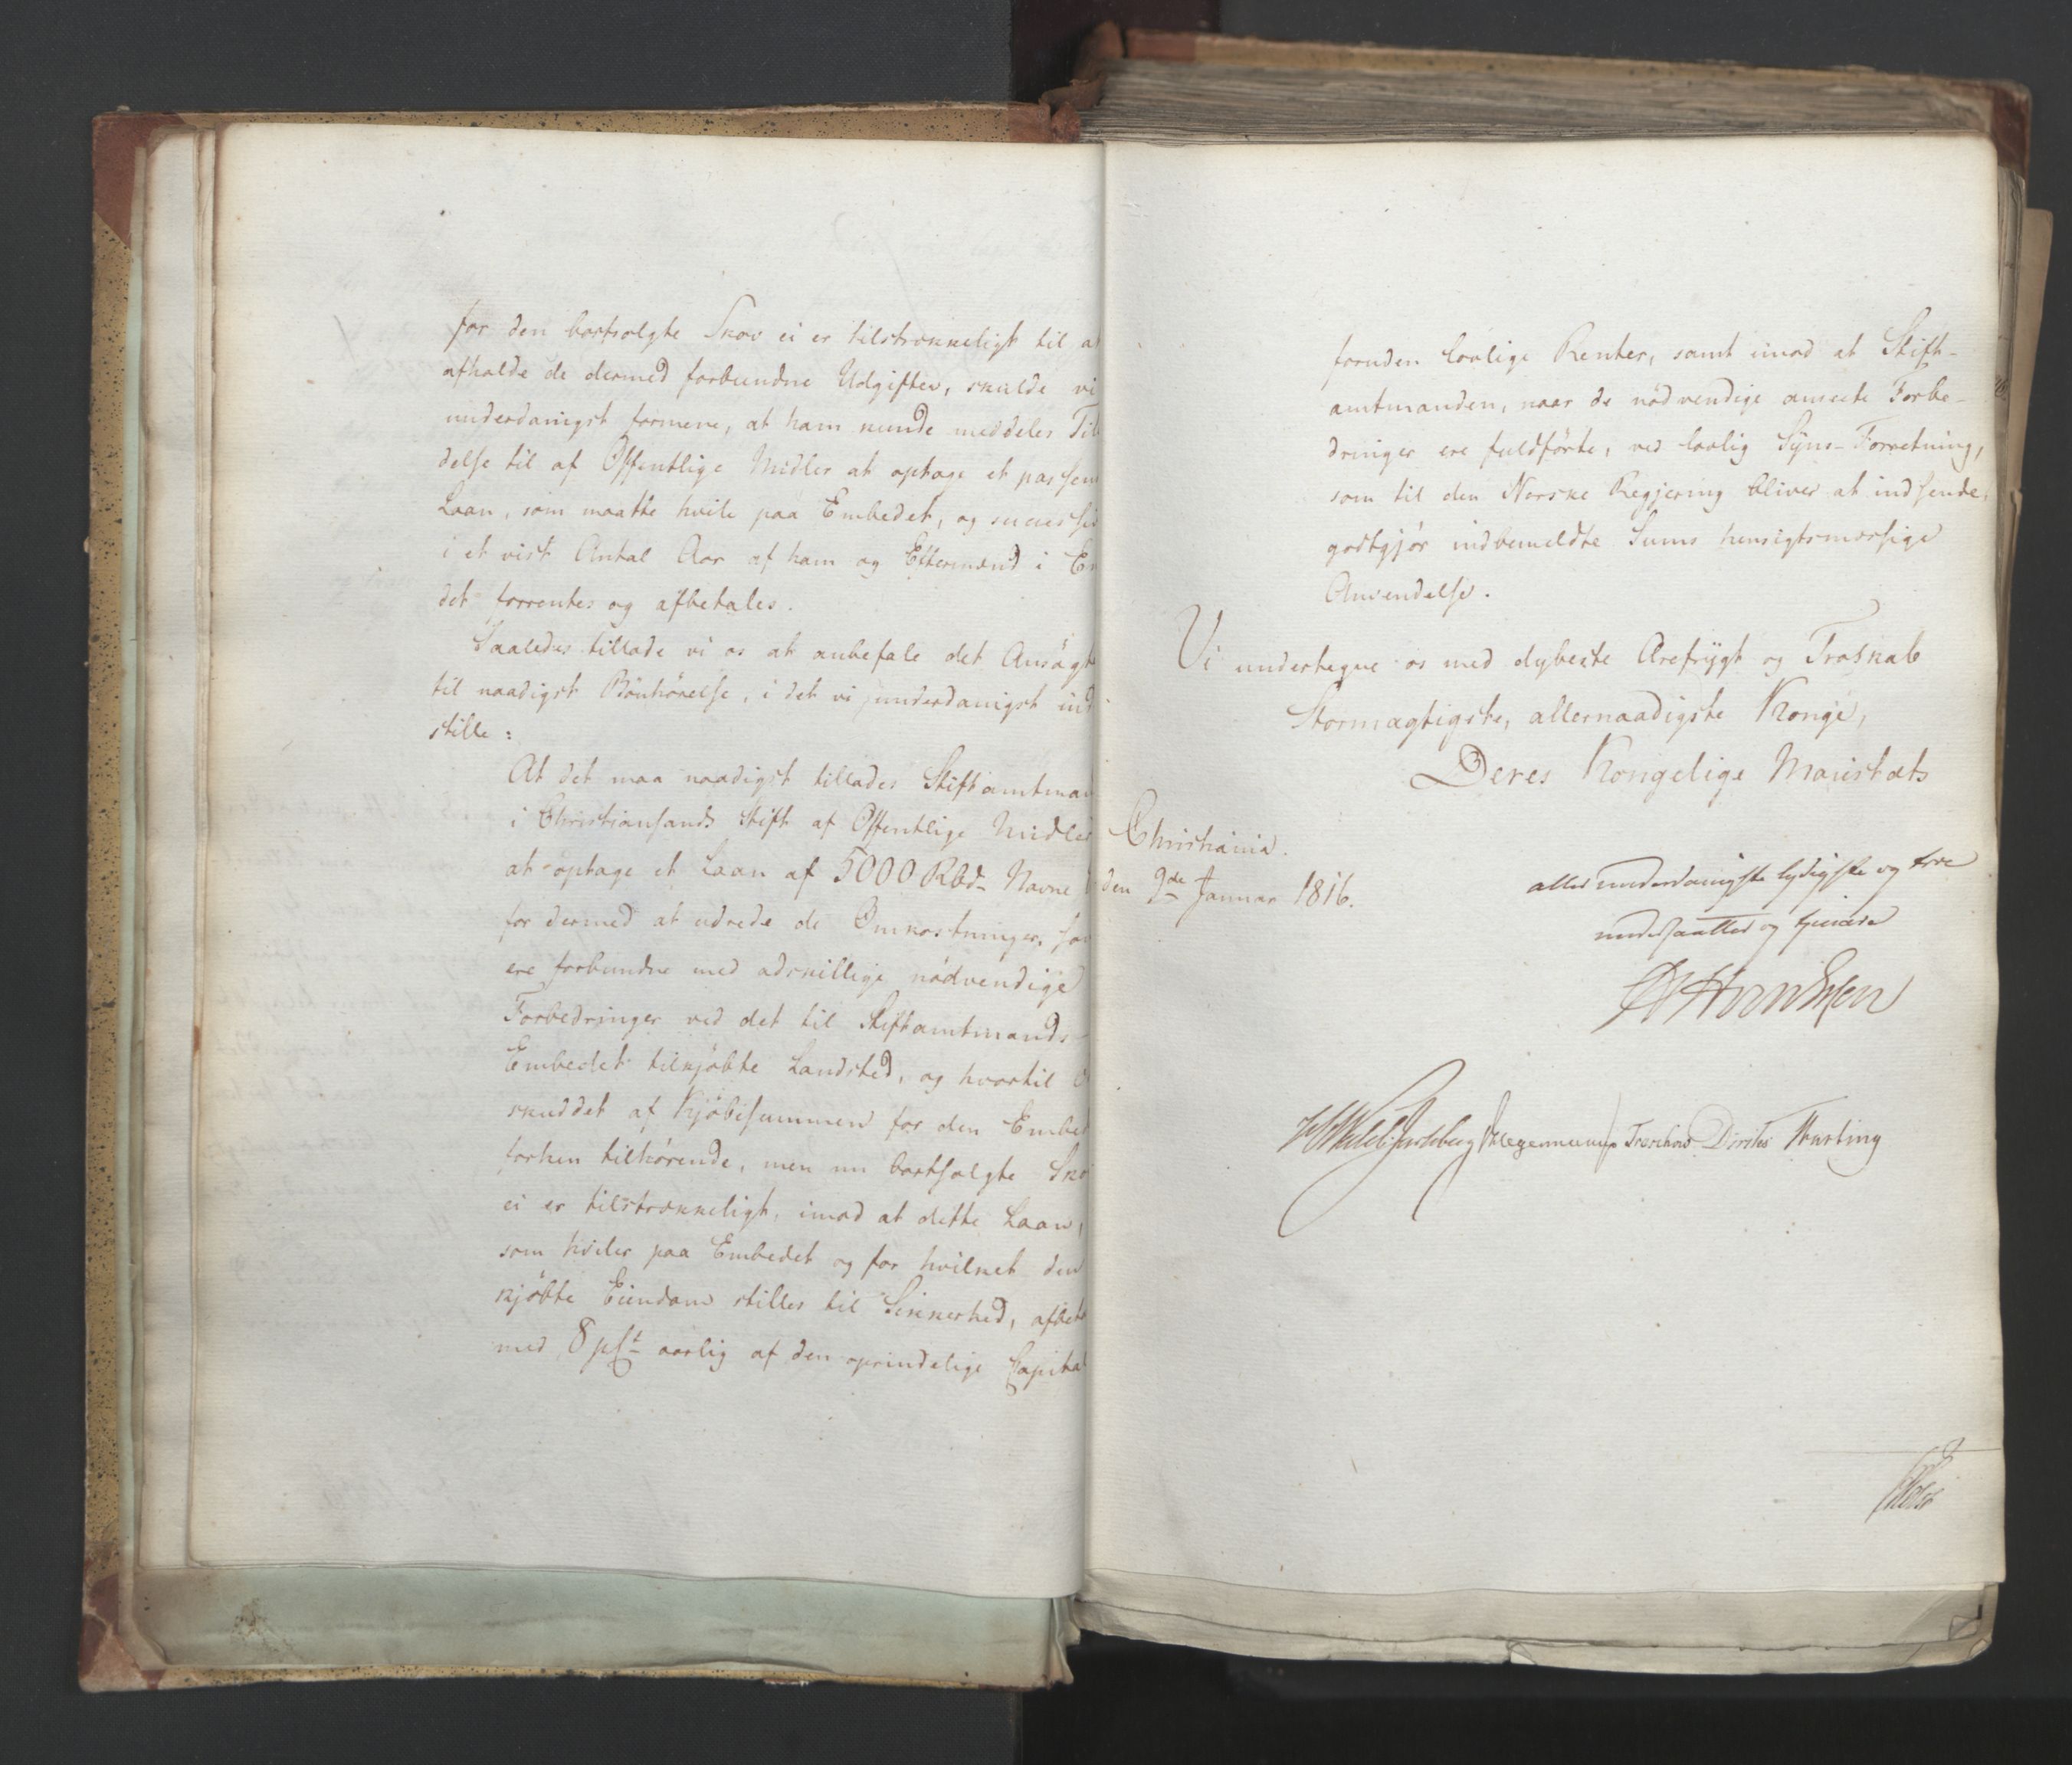 for den bortsolgte Skov ei er tilstrækkeligt til at
afholde de dermed forbundne Udgifter, skulde vi
underdanigst formene, at ham kunde meddeles Til
delse til af Offentlige Midler at optage et passen
Laan, som maatte hvile paa Embedet, og successiv
i et vist Antal Aar af ham og Eftermænd i Em
det forrentes og afbetales.
Saaledes tillade vi os at anbefale det Ansøgte
til naadigst Bönhörelse, i det vi underdanigst ind
stille:
At det maa naadigst tillades Stiftamtman
i Christiansands Stift af Offentlige Midler
at optage et Laan af 5000 Rbd. Navne
for dermed at udrede de Omkostninger, som
ere forbundne med adskillige nødvendige
Forbedringer ved det til Stiftamtmands-
Embedet tilkjöbte Landsted, og hvortil O
skuddet af Kjöbesummen for den Embed
forhen tilhörende, men nu bortsolgte Sko
ei er tilstrækkeligt, imod at dette Laan,
som hviler paa Embedet og for hvilket den
kjöbte Eiendom stilles til Sikkerhed, afbeta
med 8 pCt aarlig af den oprindelige Capital
foruden lovlige Renter, samt imod at Stift-
amtmanden, naar de nødvendige ansete Forbe-
dringer ere fuldförte, ved lovlig Syns-Forretning,
som til den Norske Regjering bliver at indsende,
godtgjör indbemeldte Sums hensigtsmæssige
Anvendelse.
Vi undertegne os med dybeste Ærefrygt og Troskab
Stormægtigste, allernaadigste Konge,
Deres Kongelige Majestæts
Christiania.
den 9de Januar 1816.
allerunderdanigste lydigste og troe
undersaatter og tjenere
Hegermann Treschow Diriks Thesting